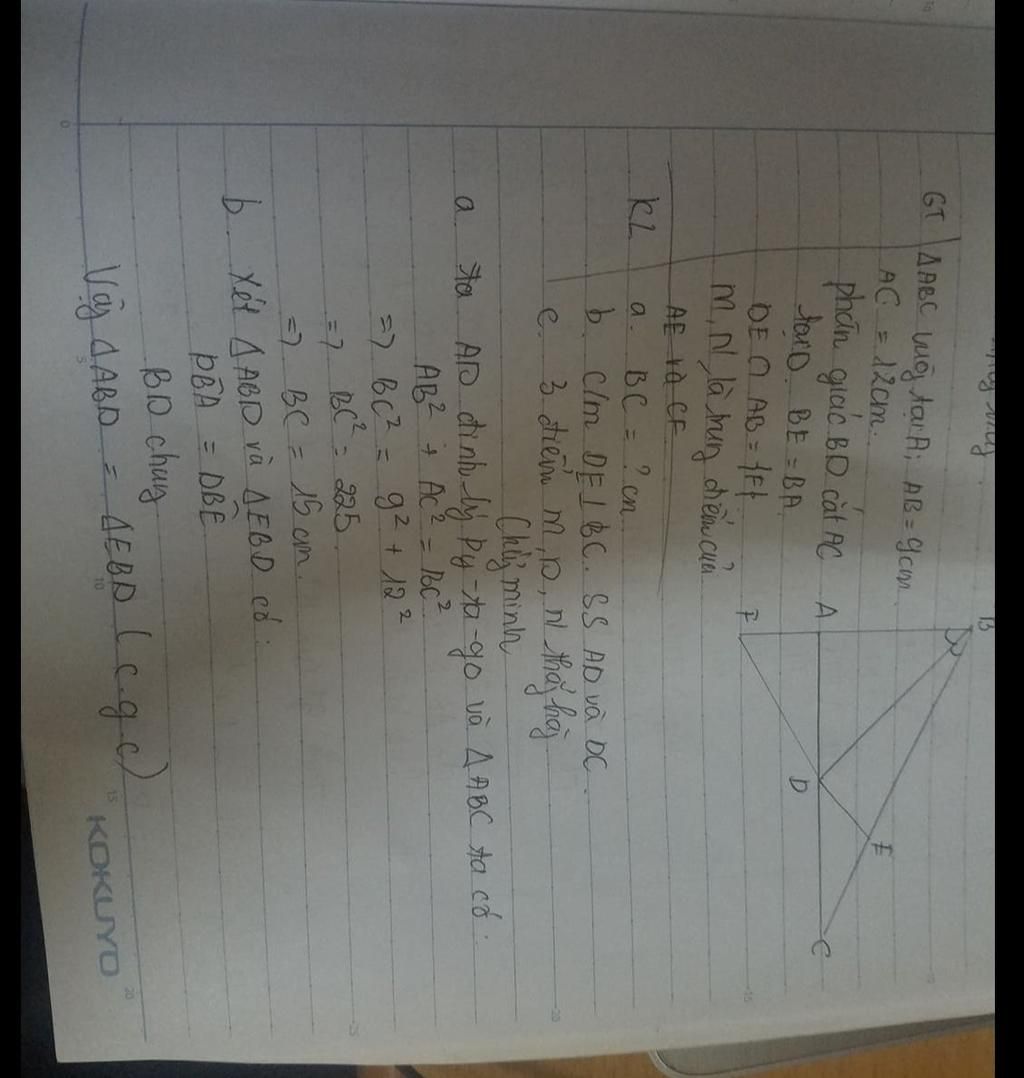 GT ΔABC vuông tại A; AB = 9cm
AC = 12cm.
phân giác BD cắt AC
tại D. BE = BA
DE ∩ AB = {F}
M, N là trung điểm của
AE và CF
KL a. BC = ? cm
b. C/m DE ⊥ BC. SS AD và DC.
c. 3 điểm M, D, N thẳng hàng
Chứng minh
a. ta AD định lý Py-ta-go và ΔABC ta có:
AB² + AC² = BC²
=> BC² = 9² + 12²
=> BC² = 225
=> BC = 15 cm.
b. Xét ΔABD và ΔEBD có:
DBA = DBE
BD chung
Vậy ΔABD = ΔEBD (c.g.c)
B
A
F
D
E
C
KOKUYO